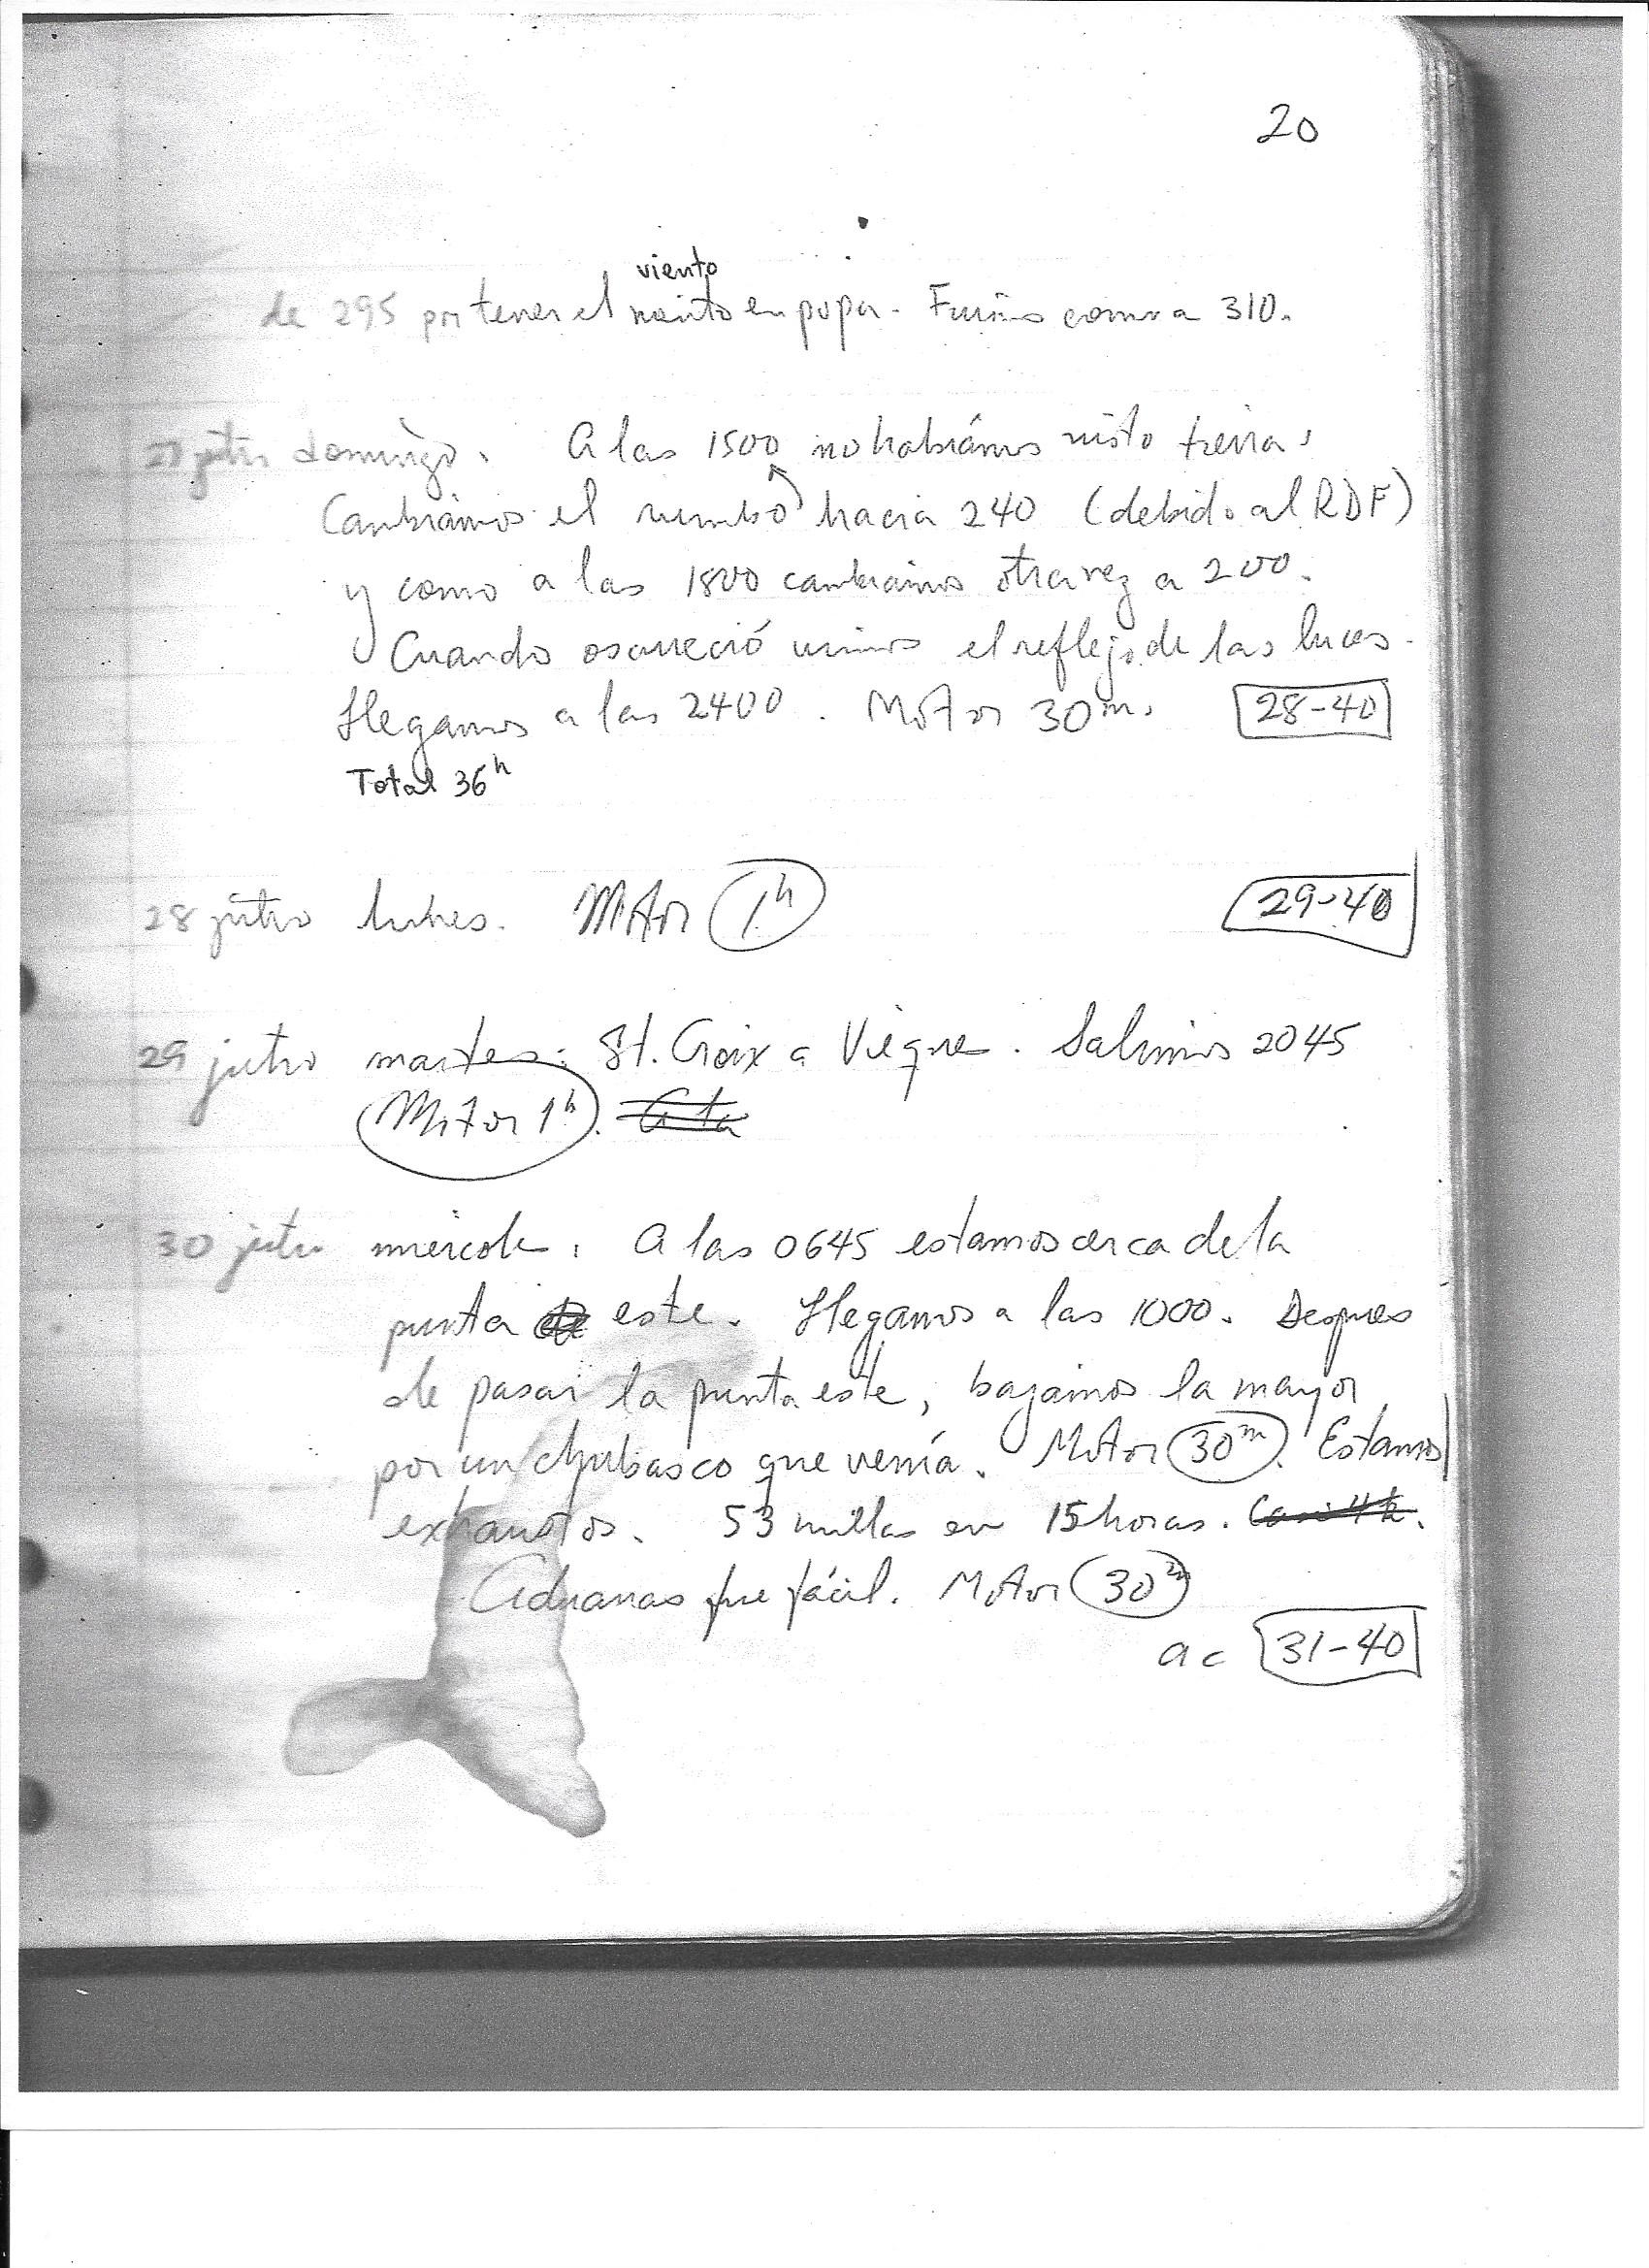 20
viento
de 295 por tener el viento en popa. Fuimos como a 310.
27 julio domingo. A las 1500 no habíamos visto tierra.
Cambiamos el rumbo hacia 240 (debido al RDF)
y como a las 1800 cambiamos otra vez a 200.
Cuando oscureció vimos el reflejo de las luces.
Llegamos a las 2400. Motor 30m. 28-40
Total 36h
28 julio lunes. Motor 1h 29-40
29 julio martes: St. Croix a Vieques. Salimos 2045
Motor 1h.
30 julio miércoles. A las 0645 estamos cerca de la
punta este. Llegamos a las 1000. Despues
de pasar la punta este, bajamos la mayor
por un chubasco que venía. Motor 30m. Estamos
exhaustos. 53 millas en 15 horas.
Aduanas fue fácil. Motor 30m
ac 31-40